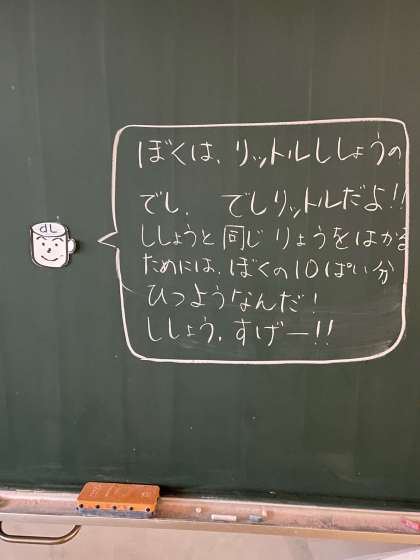 dL
ぼくは、リットルししょうの
でし、でしリットルだよ!!
ししょうと同じりょうをはかる
ためには、ぼくの10ぱい分
ひつようなんだ!
ししょう、すげー!!